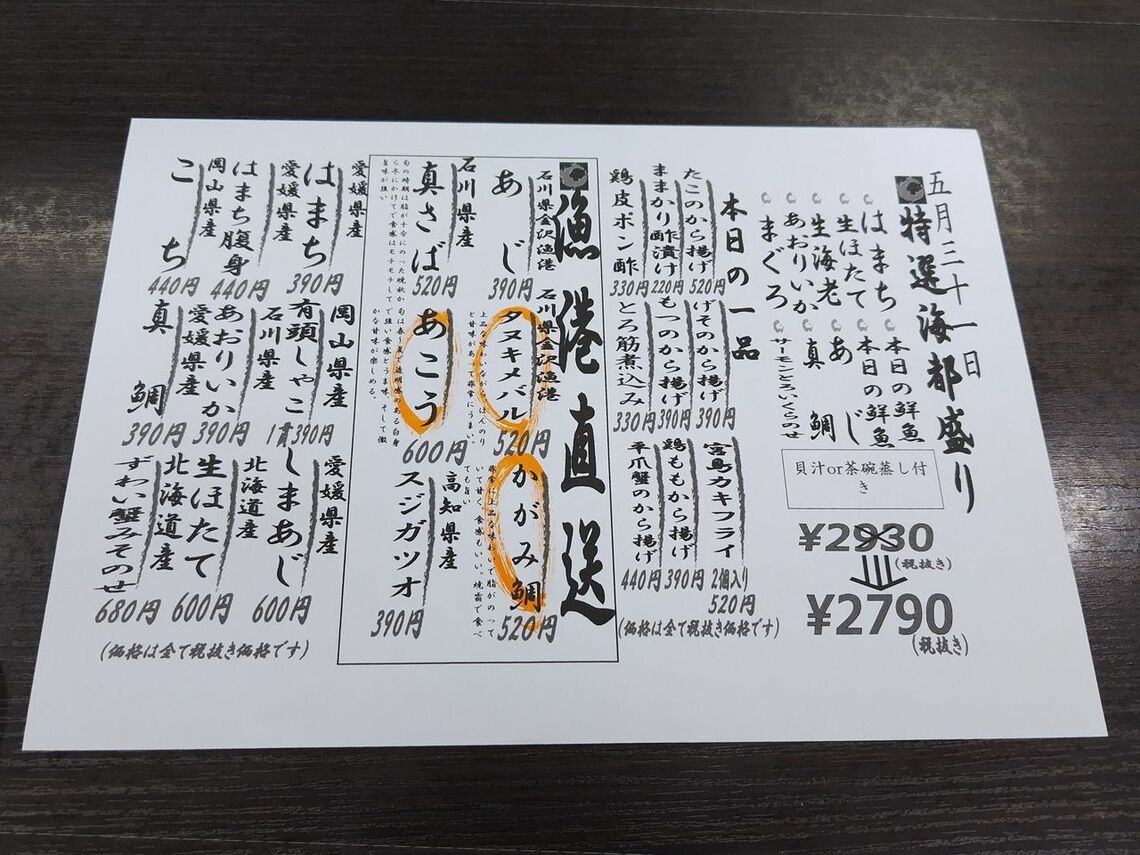 五月三十一日
特選海都盛り
はまち
生ほたて
生海老
あおりいか
まぐろ
本日の鮮魚
本日の鮮魚
あじ
真鯛
サーモンとろいくらのせ
貝汁or茶碗蒸し付き
¥2930
(税抜き)
¥2790
(税抜き)
本日の一品
たこのから揚げ
520円
ままかり酢漬け
220円
鶏皮ポン酢
330円
げそのから揚げ
390円
もつのから揚げ
390円
とろ筋煮込み
330円
宮島カキフライ
2個入り
520円
鶏ももから揚げ
390円
平爪蟹のから揚げ
440円
(価格は全て税抜き価格です)
漁港直送
石川県金沢漁港
あじ
390円
石川県金沢漁港
タヌキメバル
520円
かがみ鯛
520円
石川県産
真さば
520円
あこう
600円
高知県産
スジガツオ
390円
愛媛県産
はまち
390円
愛媛県産
はまち腹身
440円
岡山県産
こち
440円
岡山県産
有頭しゃこ
1貫390円
石川県産
あおりいか
390円
愛媛県産
真鯛
390円
愛媛県産
しまあじ
600円
北海道産
生ほたて
600円
北海道産
ずわい蟹みそのせ
680円
(価格は全て税抜き価格です)